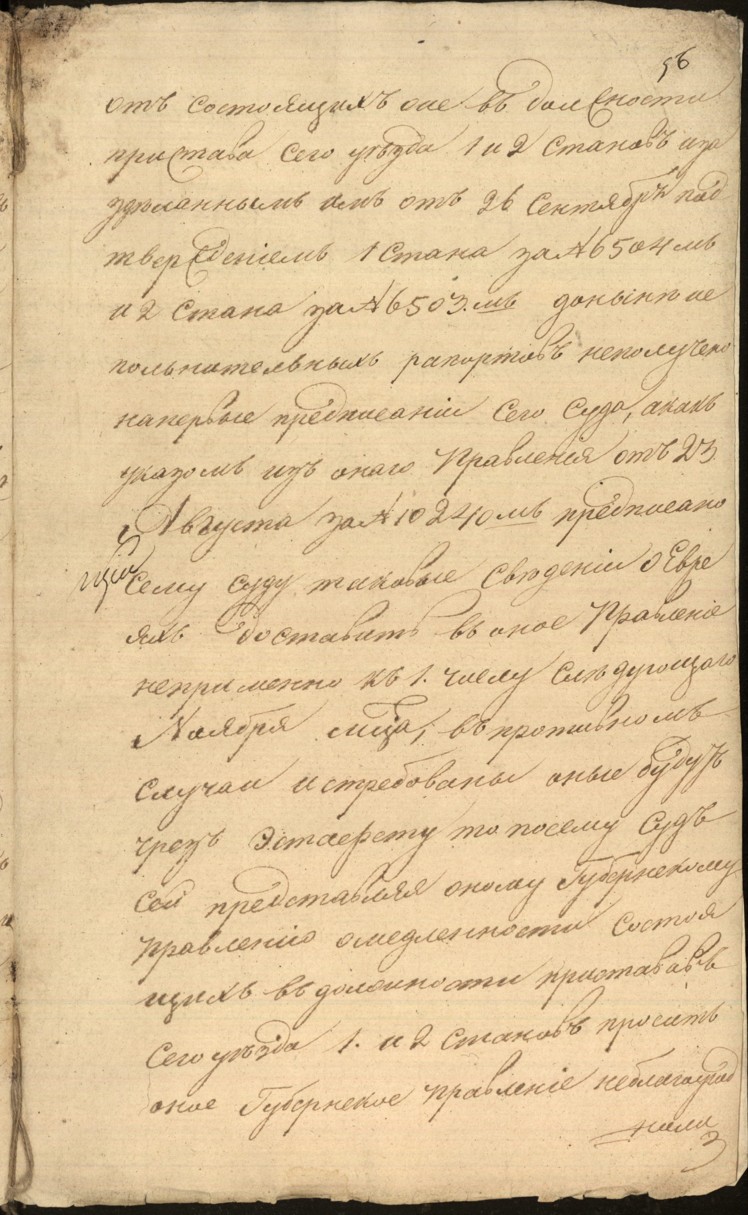 56
отъ состоящихъ она въ должности
пристава сего уѣзда 1 и 2 становъ и за
здѣланнымъ имъ отъ 26 Сентября под
твержденіемъ 1 стана за № 6504 мъ
и 2 стана за № 6503. мъ донынѣ ис
полнительныхъ рапортовъ неполучено
напервые предписаніи сего суда, а какъ
указомъ изъ онаго Правленія отъ 23
Августа за № 10240 мъ предписано
сему суду таковые свѣденіи о Евре
яхъ доставить въ оное Правленіе
непременно къ 1. числу слѣдующаго
Ноября мца, въ противномъ
случаи истребованы оные будутъ
чрезъ Эстафету то посему судъ
сей представляя оному Губернскому
Правленію омедленности состоя
щихъ въ должности приставовъ
сего уѣзда 1. и 2 становъ проситъ
оное Губернское Правленіе неблагоугод